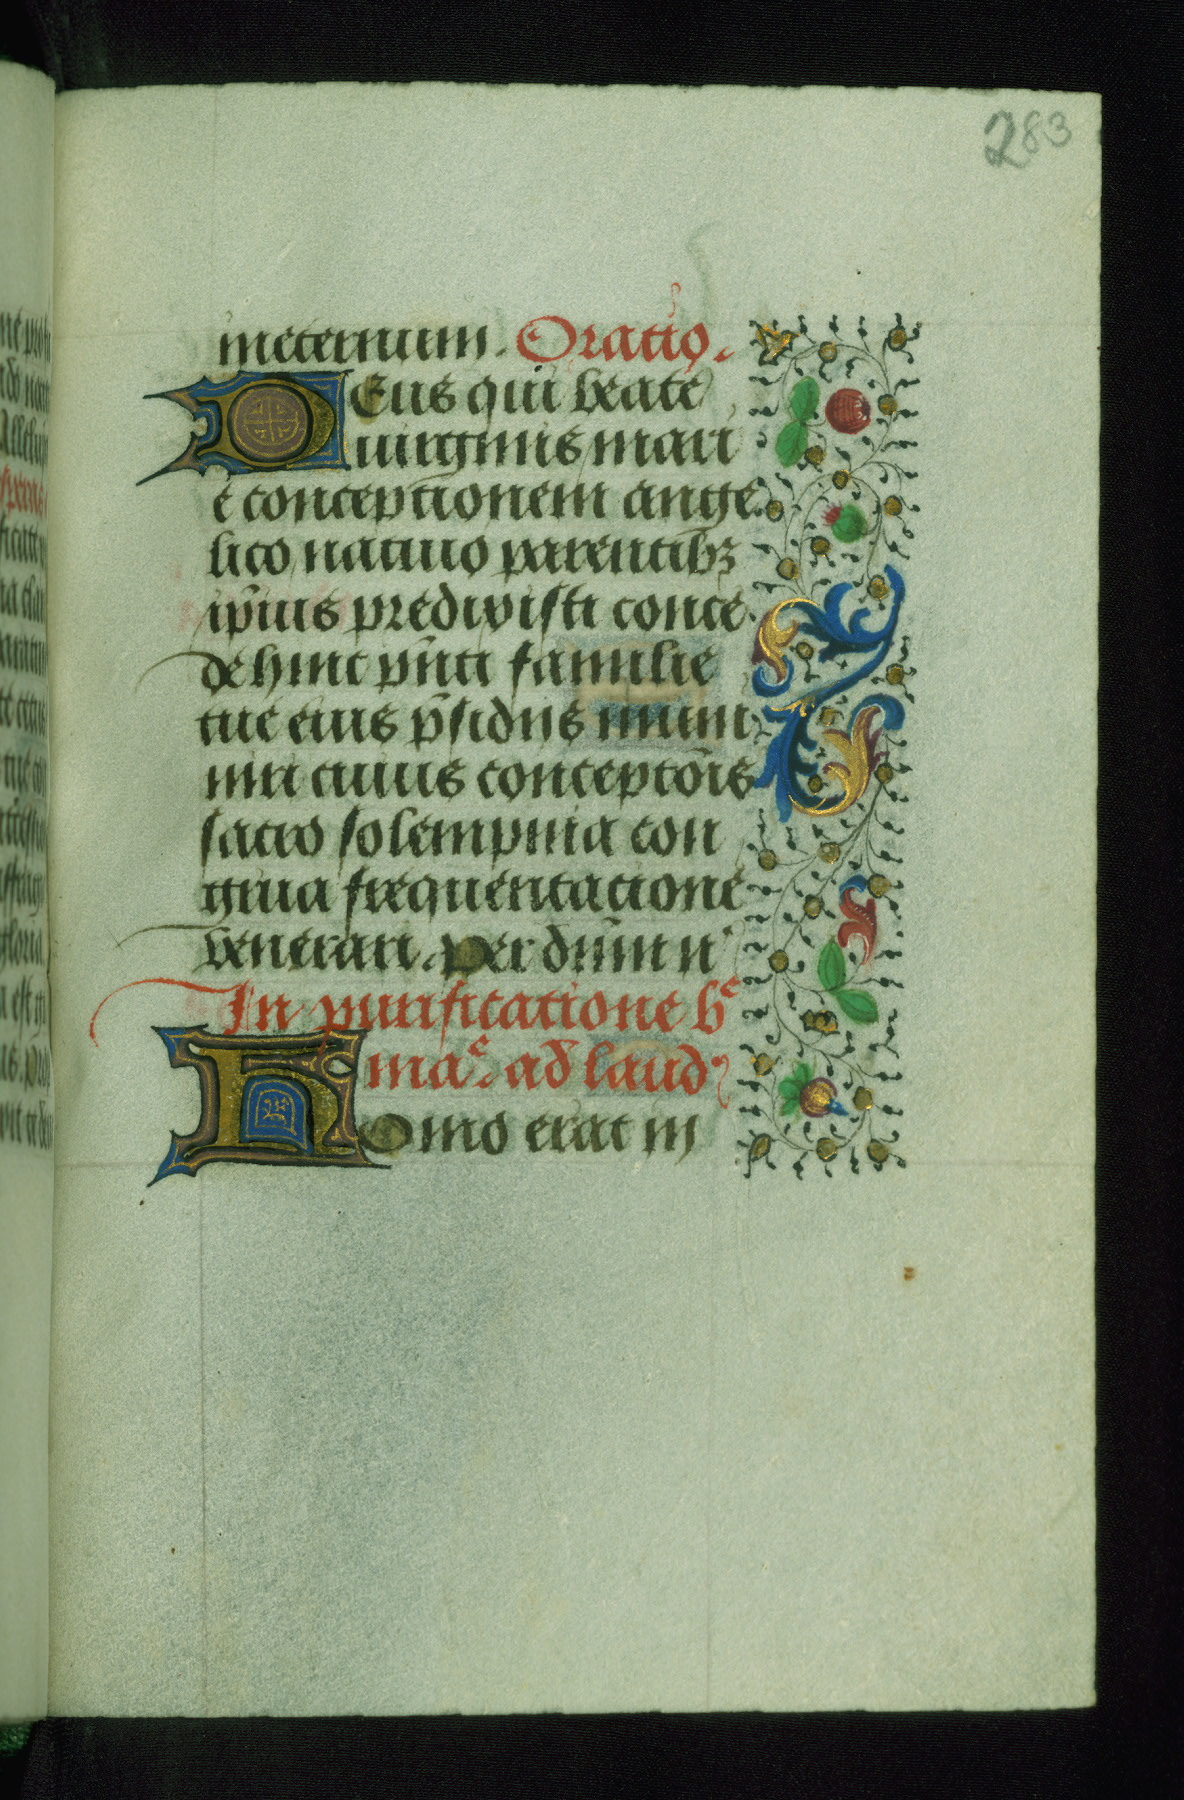 283
ineternum. Oratio.
Deus qui beate
uirginis mari
e conceptionem ange
lico natiuo parentibꝫ
ip̄ius predixisti conce
de hinc p̄nti familie
tue eius p̄sidiis muni
miri cuius conceptōis
sacro solempnia con
grua frequentacione
venerari. per dn̄m n̄
In purificatione be
mae. ad laud
Homo erat in